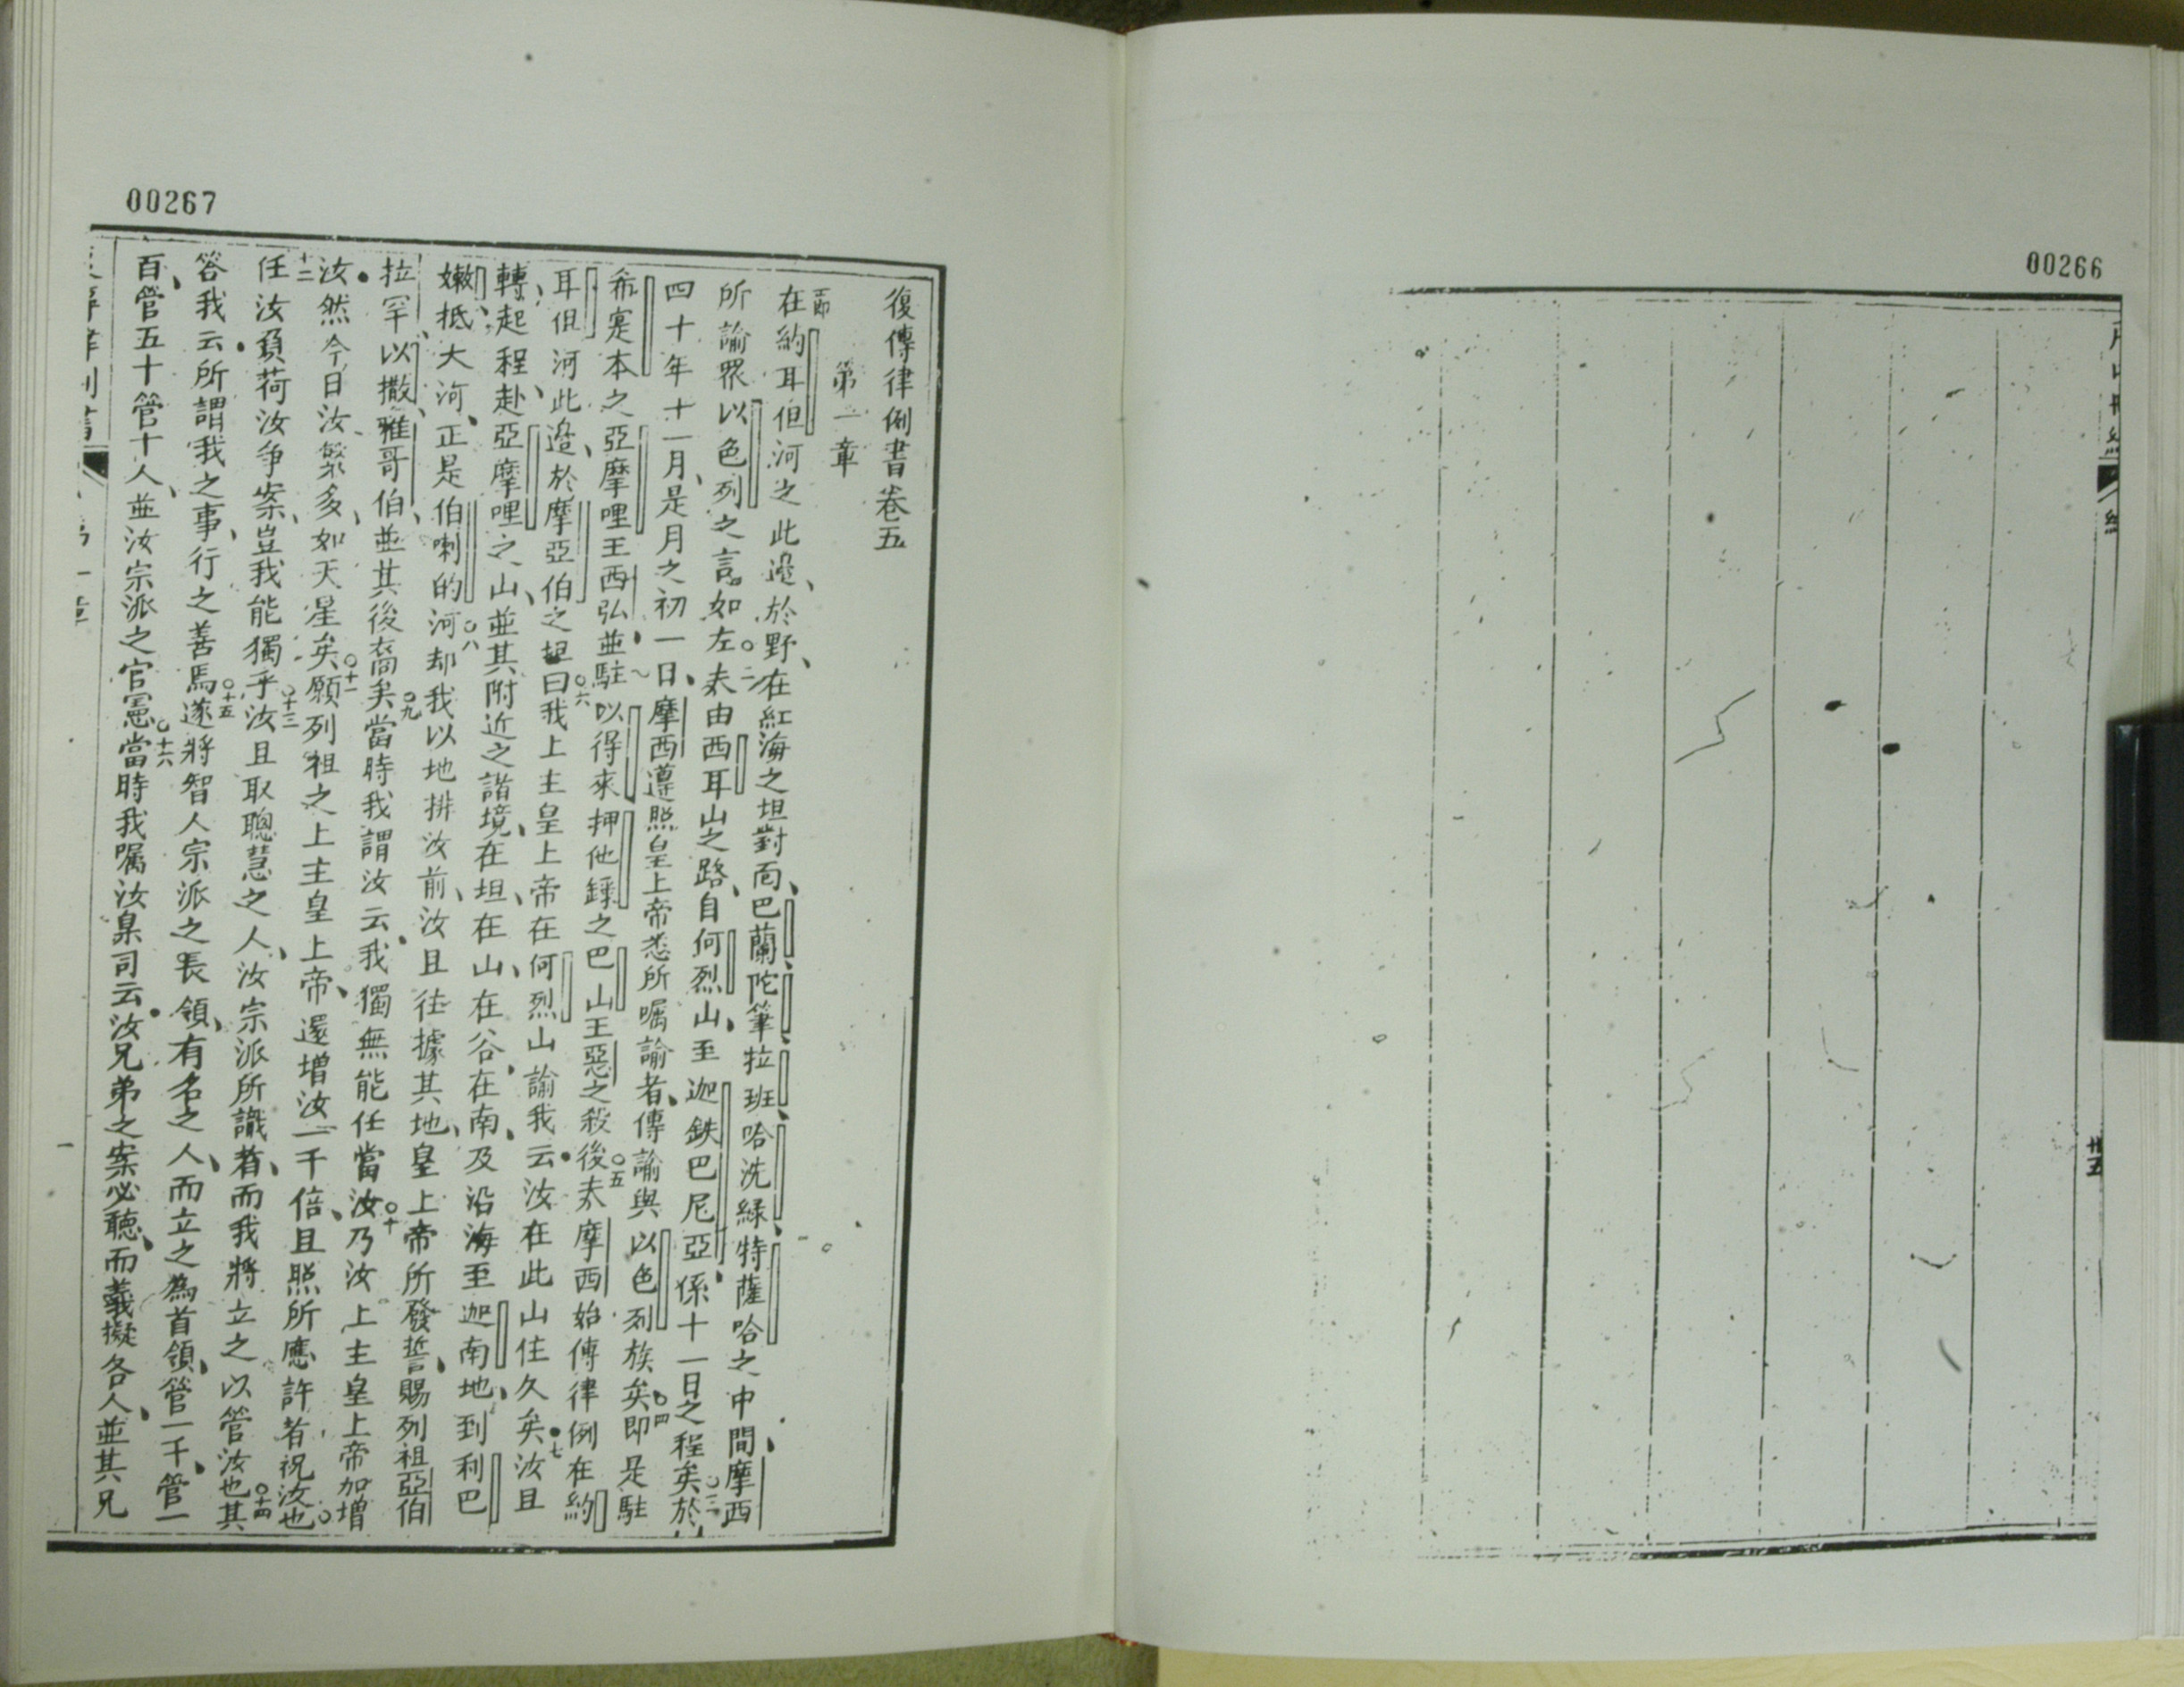 00266
卅五
00267
復傳律例書卷五
第一章
在約耳但河之此邊於野在紅海之坦對面巴蘭陀筆拉班哈洗綠特薩哈之中間摩西
所諭眾以色列之言如左○二夫由西耳山之路自何烈山至迦鉄巴尼亞係十一日之程矣○三於
四十年十一月是月之初一日摩西遵照皇上帝悉所囑諭者傳諭與以色列族矣○四即是駐
希寔本之亞摩哩王西弘並駐以得來押他錄之巴山王惡之殺後○五夫摩西始傳律例在約
耳但河此邊於摩亞伯之坦曰○六我上主皇上帝在何烈山諭我云汝在此山住久矣○七汝且
轉起程赴亞摩哩之山並其附近之諸境在坦在山在谷在南及沿海至迦南地到利巴
嫩抵大河正是伯喇的河○八却我以地排汝前汝且往據其地皇上帝所發誓賜列祖亞伯
拉罕以撒雅哥伯並其後裔矣○九當時我謂汝云我獨無能任當汝○十乃汝上主皇上帝加增
汝然今日汝繁多如天星矣○十一願列祖之上主皇上帝還增汝一千倍且照所應許者祝汝也○
十二任汝負荷汝爭案豈我能獨乎○十三汝且取聰慧之人汝宗派所識者而我將立之以管汝也○十四其
答我云所謂我之事行之善焉○十五遂將智人宗派之長領有名之人而立之為首領管一千管一
百管五十管十人並汝宗派之官憲○十六當時我囑汝臬司云汝兄弟之案必聽而義擬各人並其兄
第一章
一